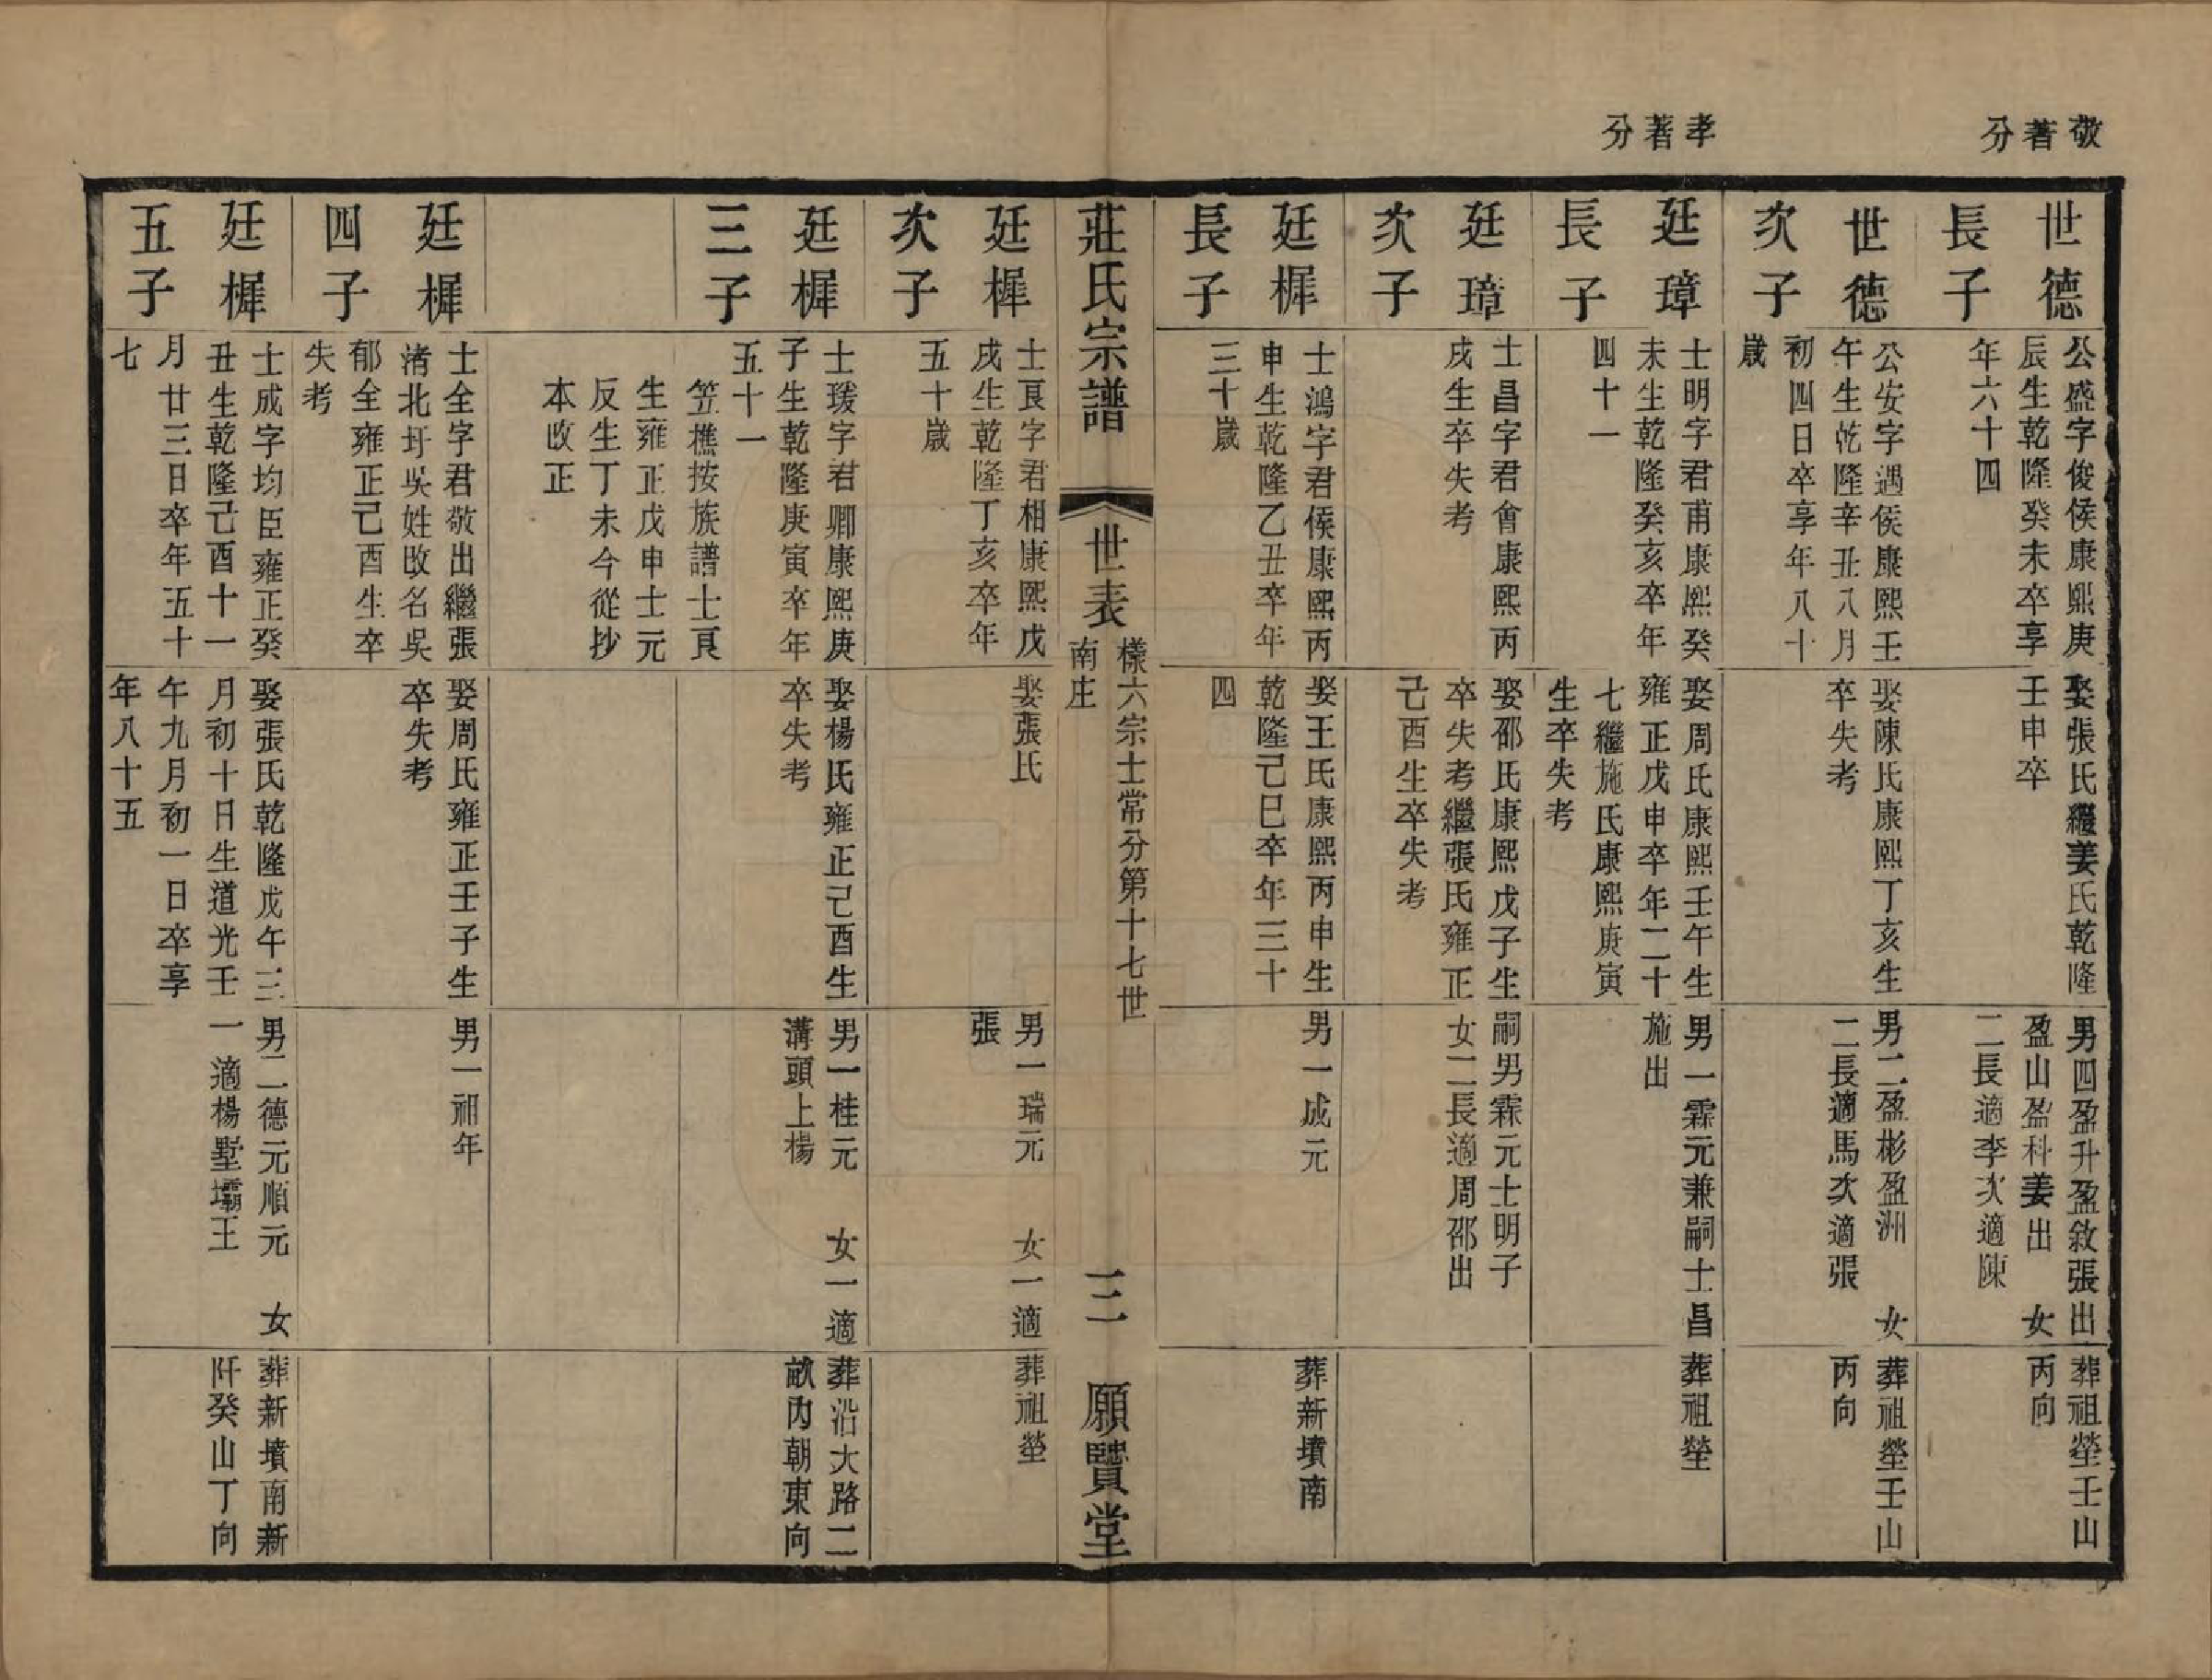 敬著分
世德
長子
公盛字俊侯康熙庚
辰生乾隆癸未卒享
年六十四
娶張氏繼姜氏乾隆
壬申卒
男四盈升盈敘張出
盈山盈科姜出　女
二長適李次適陳
葬祖塋壬山
丙向
世德
次子
公安字遇侯康熙壬
午生乾隆辛丑八月
初四日卒享年八十
歲
娶陳氏康熙丁亥生
卒失考
男二盈彬盈洲　女
二長適馬次適張
葬祖塋壬山
丙向
孝著分
廷璋
長子
士明字君甫康熙癸
未生乾隆癸亥卒年
四十一
娶周氏康熙壬午生
雍正戊申卒年二十
七繼施氏康熙庚寅
生卒失考
男一霖元兼嗣士昌
施出
葬祖塋
廷璋
次子
士昌字君會康熙丙
戌生卒失考
娶邵氏康熙戊子生
卒失考繼張氏雍正
己酉生卒失考
嗣男霖元士明子
女二長適周邵出
廷樨
長子
士鴻字君侯康熙丙
申生乾隆乙丑卒年
三十歲
娶王氏康熙丙申生
乾隆己巳卒年三十
四
男一成元
葬新墳南
莊氏宗譜
世表
樣六宗士常分第十七世
南庄
三
願賢堂
廷樨
次子
士良字君相康熙戊
戌生乾隆丁亥卒年
五十歲
娶張氏
男一瑞元　女一適
張
葬祖塋
廷樨
三子
士瑗字君卿康熙庚
子生乾隆庚寅卒年
五十一
笠樵按族譜士良
生雍正戊申士元
反生丁未今從抄
本改正
娶楊氏雍正己酉生
卒失考
男一桂元　女一適
溝頭上楊
葬沿大路二
畝內朝東向
廷樨
四子
士全字君敬出繼張
渚北圩吳姓改名吳
郁全雍正己酉生卒
失考
娶周氏雍正壬子生
卒失考
男一祖年
廷樨
五子
士成字均臣雍正癸
丑生乾隆己酉十一
月廿三日卒年五十
七
娶張氏乾隆戊午三
月初十日生道光壬
午九月初一日卒享
年八十五
男二德元順元　女
一適楊墅壩王
葬新墳南新
阡癸山丁向